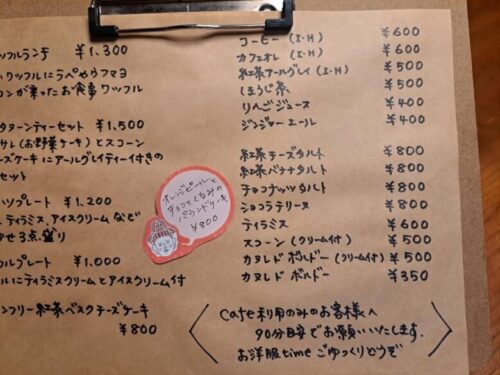 ッフルランチ ¥1.300
ワッフルにラペやウフマヨ
コンが乗ったお食事ワッフル
タターンティーセット ¥1.500
サレ(お野菜ケーキ)とスコーン
ーズケーキにアールグレイティー付きの
セット
ツプレート ¥1.200
ティラミス、アイスクリームなど
せ3点盛り
フルプレート ¥1.000
ルにティラミスクリームとアイスクリーム付
ンフリー紅茶バスクチーズケーキ
¥800
オレンジピールと
チョコとくるみの
パウンドケーキ
¥800
コーヒー(I・H) ¥600
カフェオレ(I・H) ¥600
紅茶アールグレイ(I・H) ¥500
ほうじ茶 ¥500
りんごジュース ¥400
ジンジャーエール ¥400
紅茶チーズタルト ¥800
紅茶バナナタルト ¥800
チョコナッツタルト ¥800
ショコラテリーヌ ¥800
ティラミス ¥600
スコーン(クリーム付) ¥500
カヌレドボルドー(クリーム付) ¥500
カヌレドボルドー ¥350
Cafe利用のみのお客様へ
90分目安でお願いいたします。
お洋服timeごゆっくりどうぞ